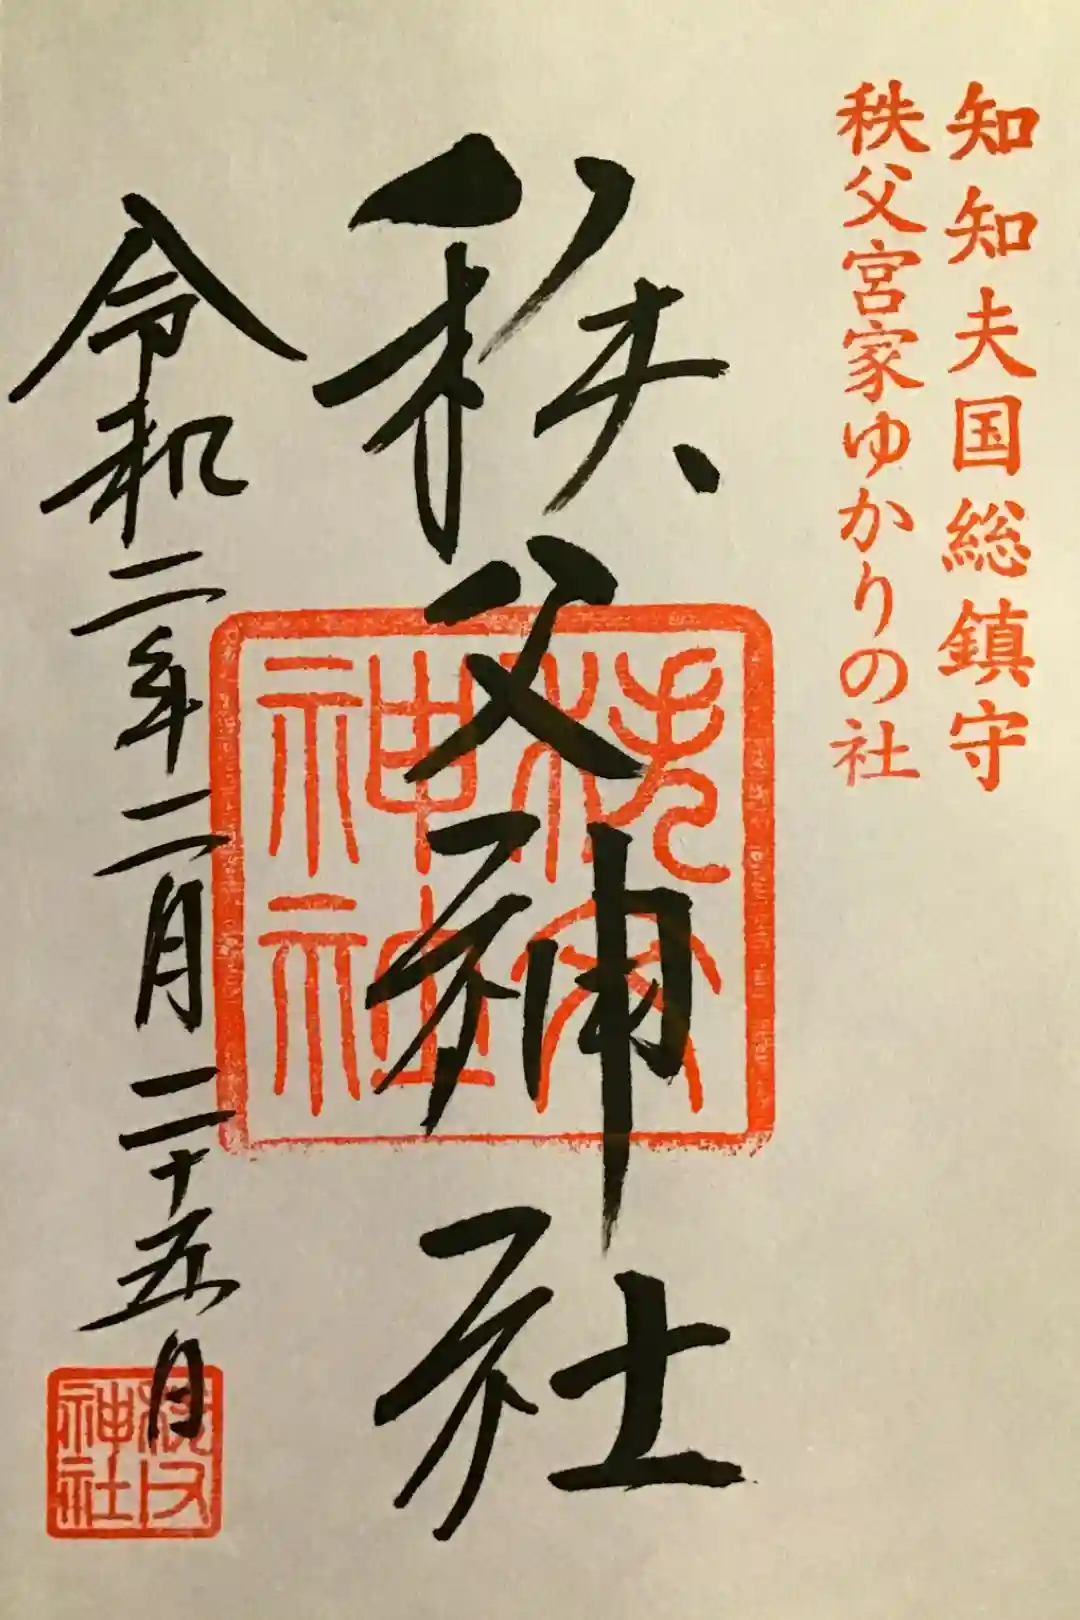 知知夫国総鎮守
秩父宮家ゆかりの社
秩父神社
秩父神社
令和二年二月二十五日
秩父神社